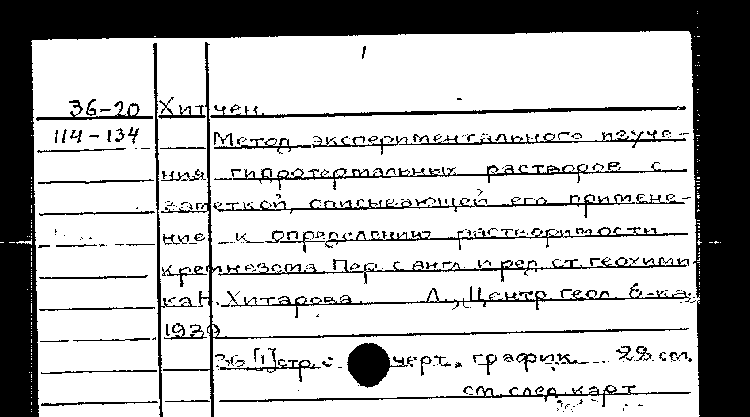 1
36-20 Хитчен.
114-134 Метод экспериментального изуче-
ния гидротермальных растворов с
заметкой, описывающей его примене-
ние к определению растворимости
кремнезема Пер. с англ. и ред. ст. геохими
ка Н. Хитарова Л., Центр. геол. б-ка,
1939
36 [1] стр. с черт., график. 22 см.
см. след. карт